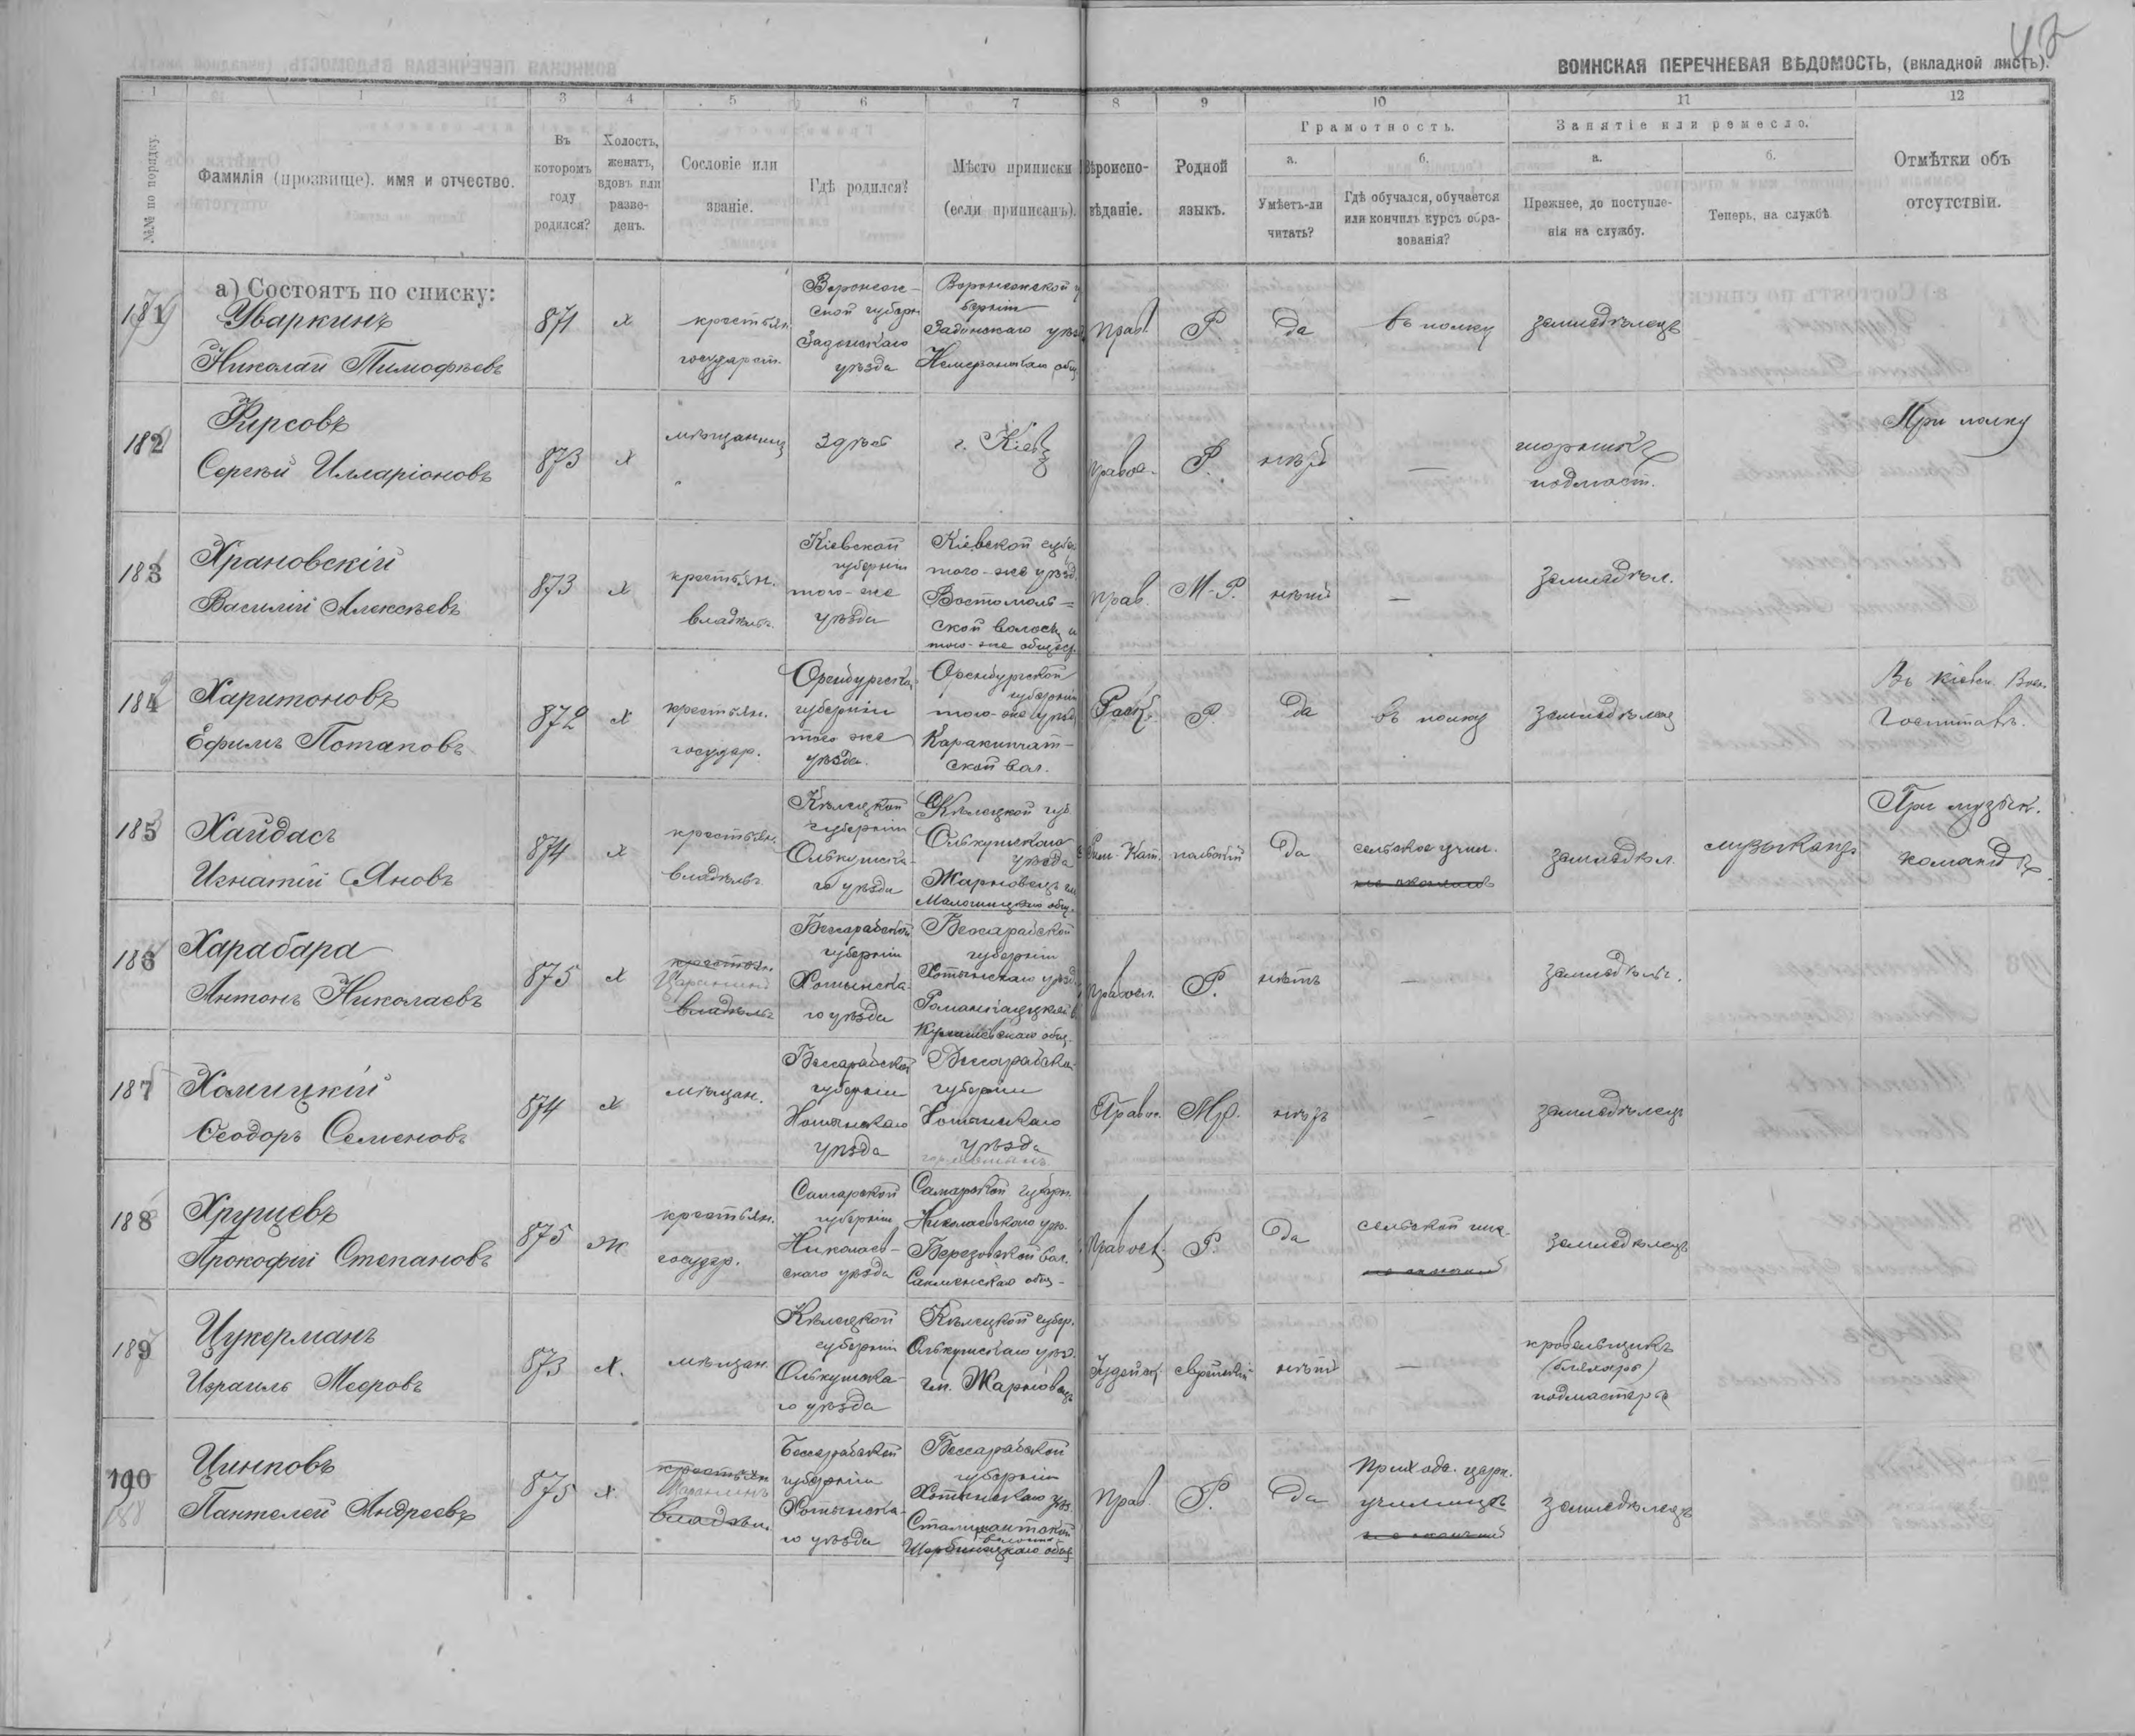 42
ВОИНСКАЯ ПЕРЕЧНЕВАЯ ВѢДОМОСТЬ, (вкладной листъ).
1 1 3 4 5 6 7 8 9 10 11 12
№№ по порядку.
Фамилія (прозвище), имя и отчество.
Въ которомъ году родился?
Холостъ, женатъ, вдовъ или разве-денъ.
Сословіе или званіе.
Гдѣ родился?
Мѣсто приписки (если приписанъ).
Вѣроиспо-вѣданіе.
Родной языкъ.
Грамотность.
а.
Умѣетъ-ли читать?
б.
Гдѣ обучался, обучается или кончилъ курсъ обра-зованія?
Занятіе или ремесло.
а.
Прежнее, до поступле-нія на службу.
б.
Теперь, на службѣ
Отмѣтки объ отсутствіи.
а) Состоятъ по списку:
181
Уваркинъ
Николай Тимофѣевъ
871
х
крестьян.
государст.
Воронеж-
ской губерн
Задонскаго
уѣзда
Воронежской
берніи
Задонскаго уѣзд
прав.
Р
Да
въ полку
земледѣлецъ
182
Фирсовъ
Сергѣй Илларіоновъ
873
х
мѣщанинъ
Здѣсь
г. Кіевъ
правос.
Р.
нѣтъ
—
шорникъ
подмаст.
При полку
183
Храновскій
Василій Алексѣевъ
873
х
крестьян.
владѣльч.
Кіевской
губерніи
того-же
уѣзда
Кіевской губер
того-же уѣзд.
Востомоль-
ской волости
того-же общест.
прав.
М-Р.
нѣтъ
—
земледѣл.
184
Харитоновъ
Ефимъ Потаповъ
872
х
крестьян.
государ.
Оренбургской
губерніи
того же
уѣзда.
Оренбургской
губерніи
того-же уѣзд
Каракипчат-
ской вол.
Раск.
Р.
Да
въ полку
земледѣлец
Въ кіевск. Воен.
Госпиталѣ.
185
Хайдасъ
Игнатій Яновъ
874
х
крестьян.
владѣльч.
Кѣлецкой
губерніи
Олькушска-
го уѣзда
Кѣлецкой губ.
Олькушскаго
уѣзда
Жарновецъ гм
Рим-Кат.
польскій
Да
сельское учил.
земледѣл.
музыкантъ
При музык.
командѣ.
186
Харабара
Антонъ Николаевъ
875
х
крестьян.
Царанинъ
владѣльч.
Бессарабской
губерніи
Хотинска-
го уѣзда
Бессарабской
губерніи
Хотинскаго уѣзд.
правосл.
Р.
нѣтъ
—
земледѣльч.
187
Хомицкій
Ѳеодоръ Семеновъ
874
х
мѣщан.
Бессарабской
губерніи
Хотинскаго
уѣзда
Бессарабской
губерніи
Хотинскаго
уѣзда
Правос.
Мр.
нѣтъ
—
земледѣлецъ
188
Хрущевъ
Прокофій Степановъ
875
Ж
крестьян.
государ.
Самарской
губерніи
Николаев-
скаго уѣзда
Самарской губерн.
Николаевскаго уѣз.
Березовской вол.
правосл.
Р.
Да
земледѣлецъ
189
Цукерманъ
Израиль Мееровъ
873
х.
мѣщан.
Кѣлецкой
губерніи
Олькушска-
го уѣзда
Кѣлецкой губер.
Олькушскаго уѣз.
гм. Жарновецъ
Іудейск.
еврейскій
нѣтъ
—
кровельщикъ
(бляхарь)
подмастерье
190
188
Цинповъ
Пантелей Андреевъ
875
х
крестьян
Царанинъ
владѣльч.
Бессарабской
губерніи
Хотинска-
го уѣзда
Бессарабской
губерніи
Хотинскаго уѣз
прав.
Р.
Да
Приходс. церк.
училище
земледѣлецъ